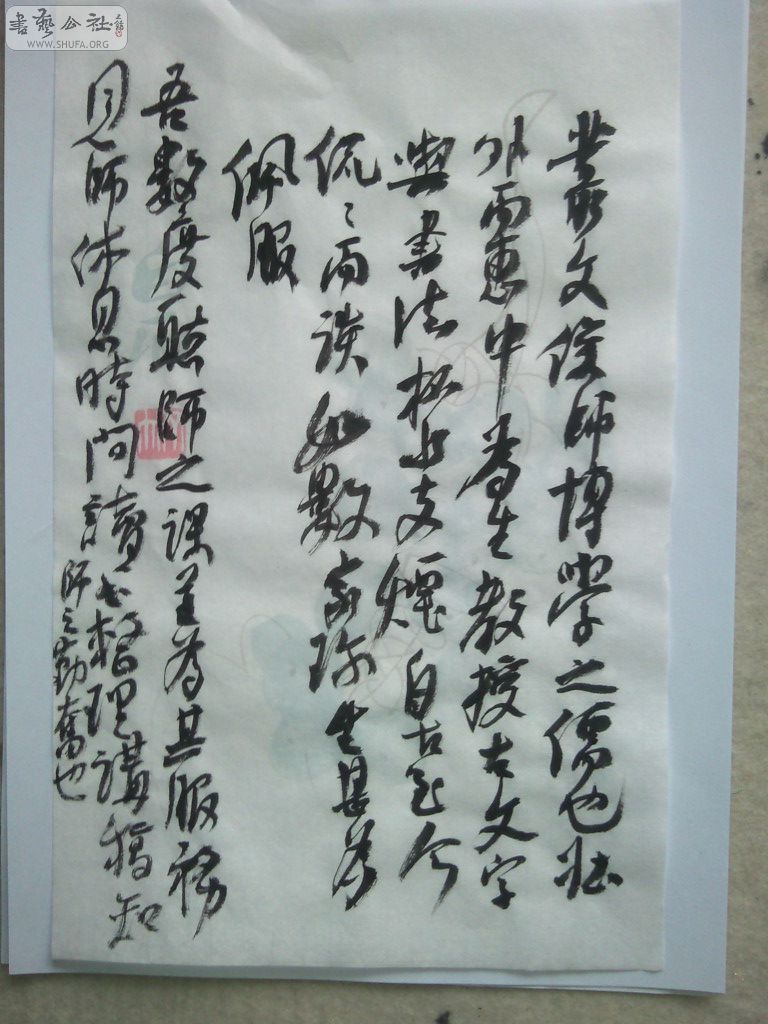 書藝公社
WWW.SHUFA.ORG
叢文俊師博學之儒也壯
外而惠中為生教授古文字
與書法狂占支煙自古至今
侃〻而談如數家珍生甚為
佩服
吾數度聽師之課並為其服務
見師休息時間讀書整理講稿知
師之勤奮也